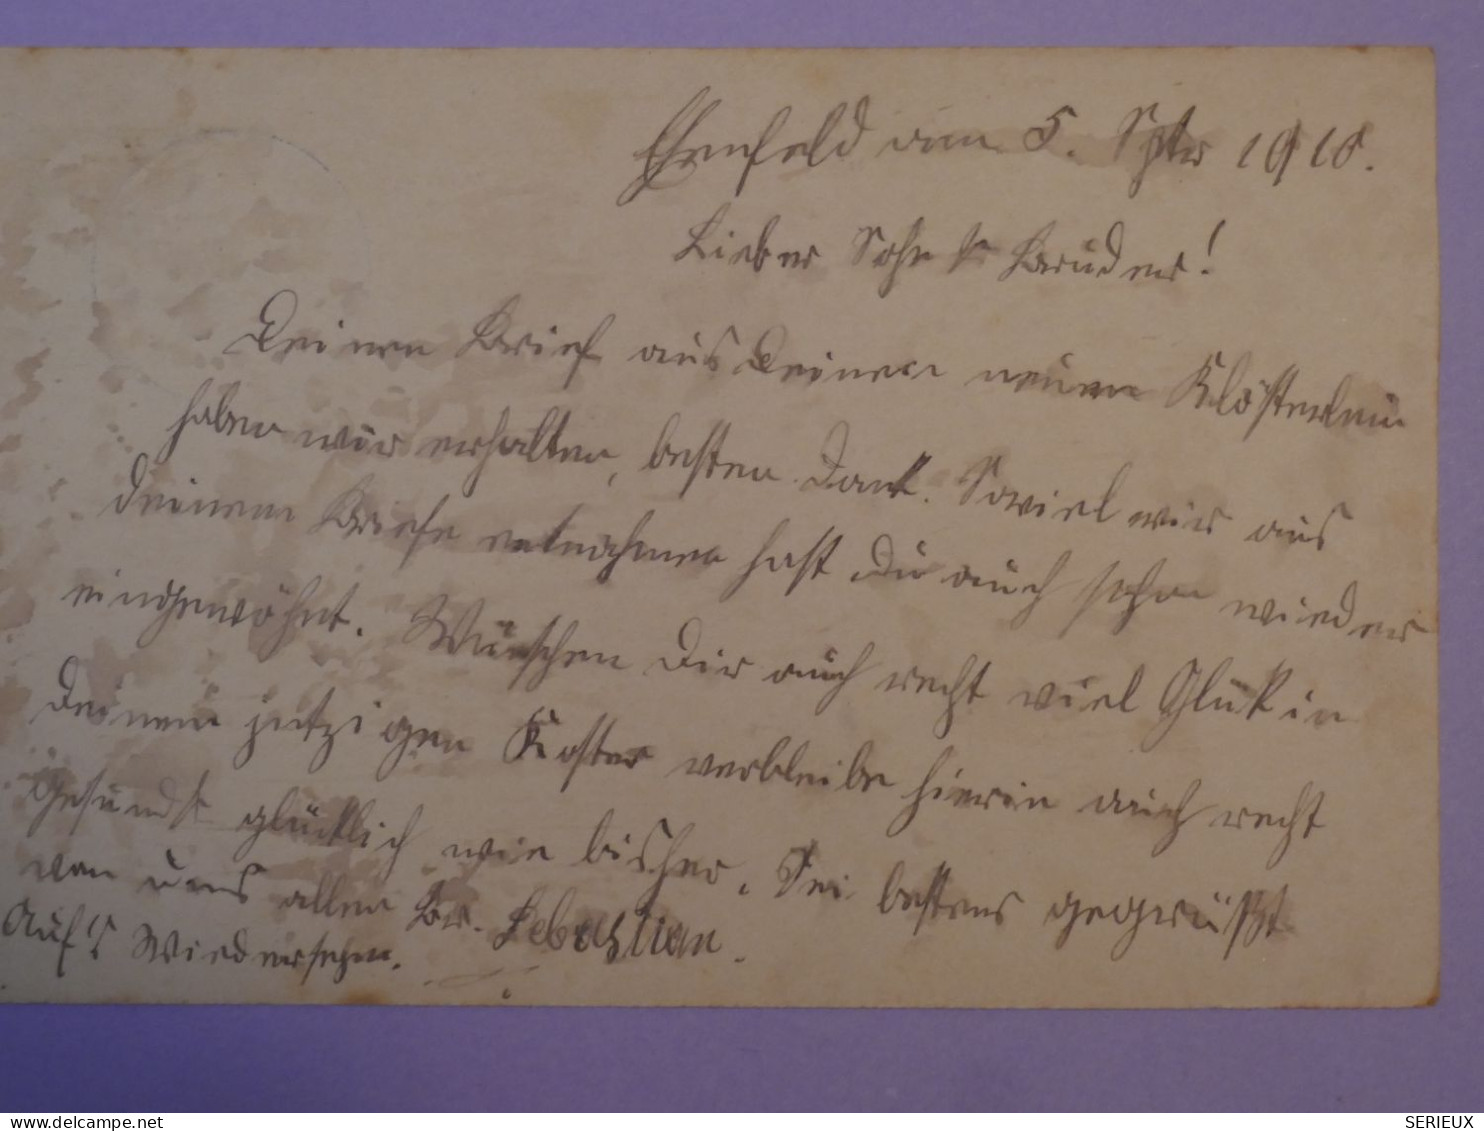 Ehrenfeld am 5. Sptr 1910.
Lieber Sohn & Bruder!
Deinen Brief aus Deinem neuen Klösterlein
haben wir erhalten, besten Dank. Soviel wir aus
deinem Briefe entnahmen hast Du auch schon wieder
eingewöhnt. Wünschen Dir auch recht viel Glük in
Deinem jetzigen Koster verbleibe hierin auch recht
gesund & glücklich wie bisher. Sei bestens gegrüßt
von uns allen Br. Sebastian.
Auf's Wiedersehen.
www.delcampe.net
SERIEUX